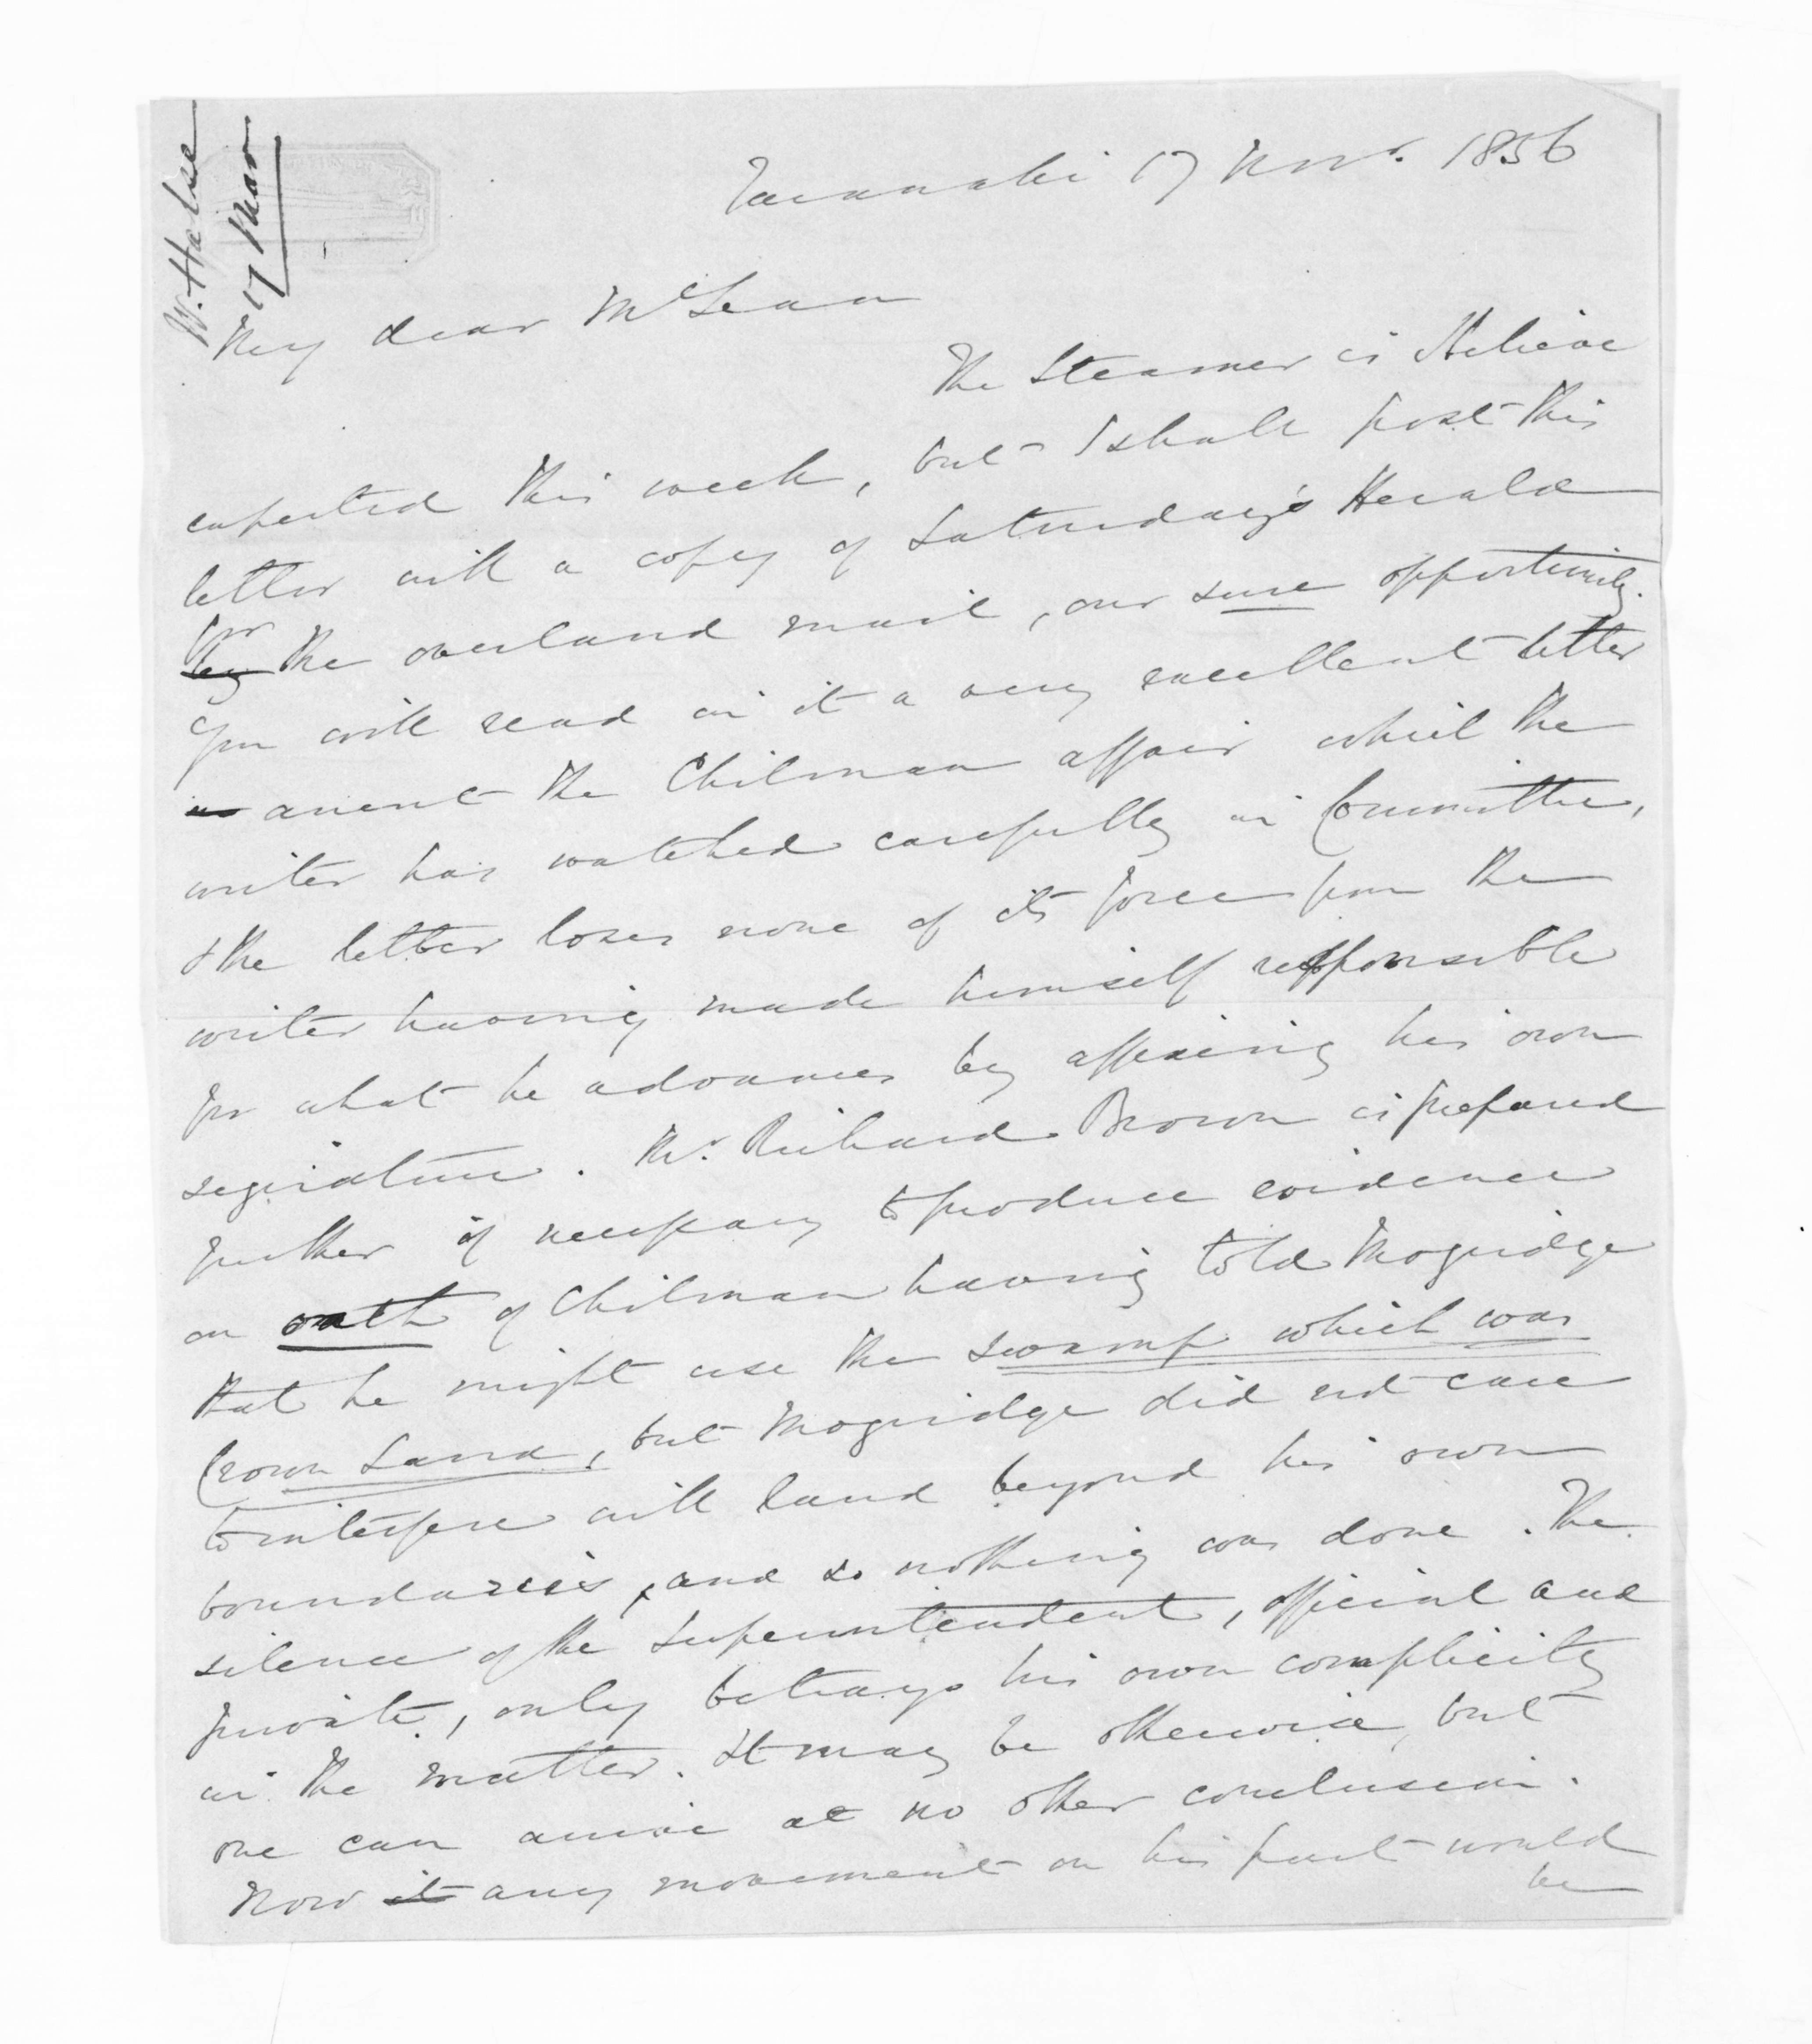 W. Halse
17 Nov
Taranaki 17 Novr. 1856
My dear McLean
The Steamer is I believe
expected this week, but I shall post this
letter with a copy of Saturday's Herald
by for the overland mail, our sure opportunity.
You will read in it a very excellent letter
anent the Chilman affair which the
writer has watched carefully in Committee,
& the letter loses none of its force from the
writer having made himself responsible
for what he advances by affixing his own
signature. Mr. Richard Brown is prepared
further if necessary to produce evidence
on oath of Chilman having told Mogridge
that he might use the swamp which was
Crown Land, but Mogridge did not care
to interfere with land beyond his own
boundaries, and so nothing was done. The
silence of the Superintendent, official and
private, only betrays his own complicity
in the matter. It may be otherwise, but
one can arrive at no other conclusion.
Now it any movement on his part would
be